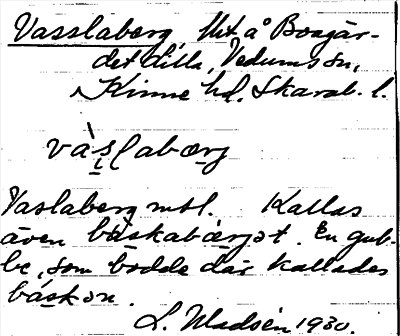 Vasslaberg, Utt å Bosgår-
det Lilla, Vedums sn,
Kinne hd. Skarab. l.
vàs̩l̩abærg
Vaslaberg mtl. Kallas
även båskabærjət. En gub-
be, som bodde där kallades
båskən.
L. Wadsén 1930.